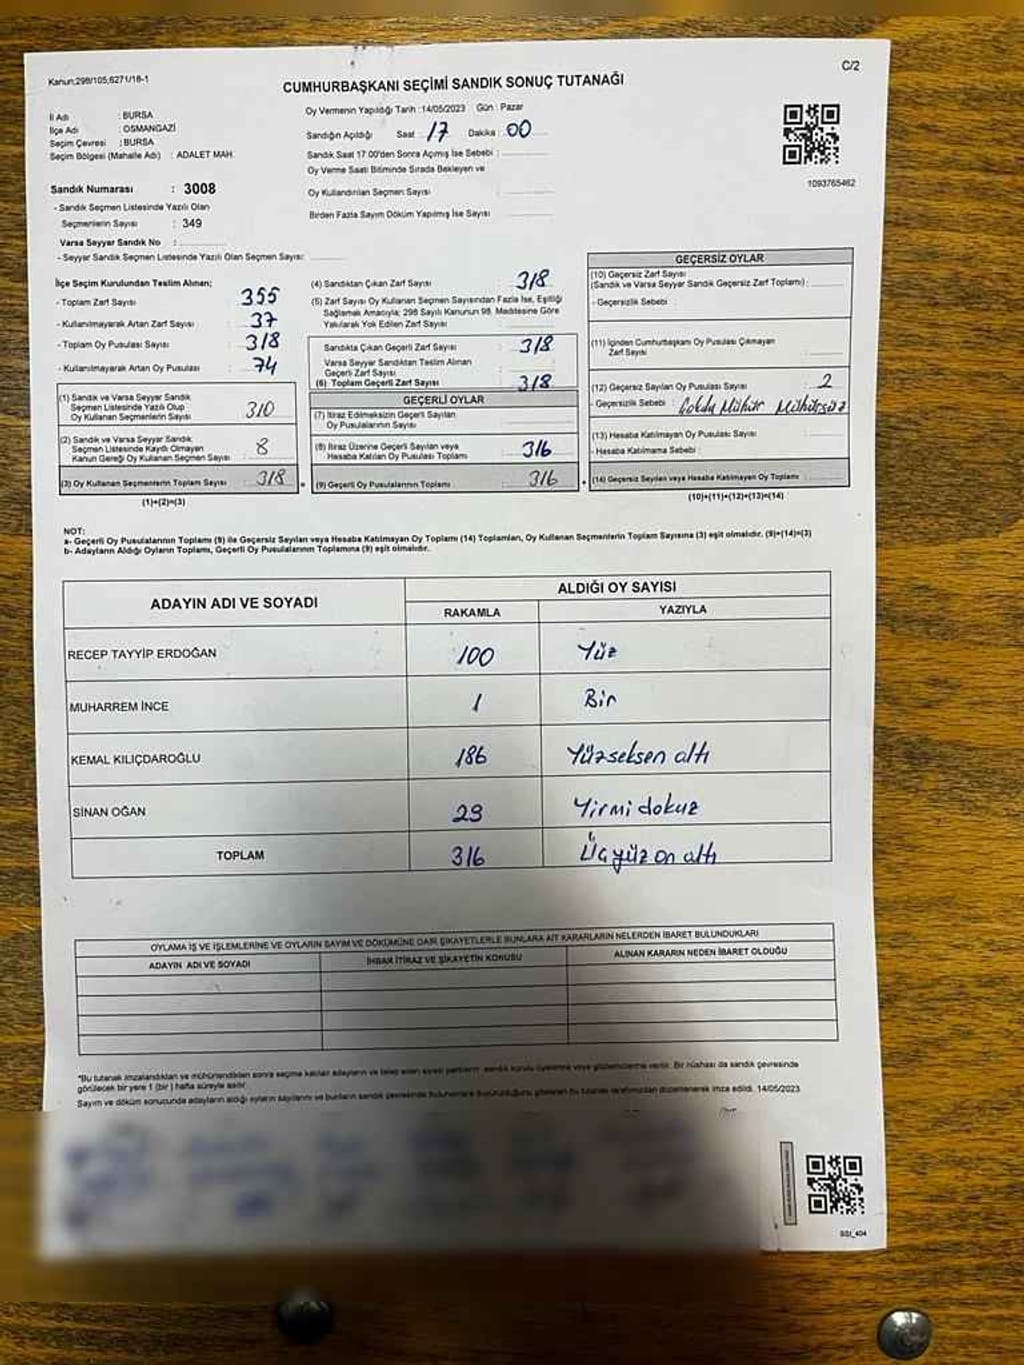 Kanun;298/105,6271/18-1
C/2
CUMHURBAŞKANI SEÇİMİ SANDIK SONUÇ TUTANAĞI
İl Adı : BURSA
İlçe Adı : OSMANGAZİ
Seçim Çevresi : BURSA
Seçim Bölgesi (Mahalle Adı) : ADALET MAH.
Sandık Numarası : 3008
- Sandık Seçmen Listesinde Yazılı Olan
Seçmenlerin Sayısı : 349
Varsa Seyyar Sandık No :
- Seyyar Sandık Seçmen Listesinde Yazılı Olan Seçmen Sayısı:
Oy Vermenin Yapıldığı Tarih :14/05/2023 Gün : Pazar
Sandığın Açıldığı Saat : 17 Dakika : 00
Sandık Saat 17:00'den Sonra Açılmış İse Sebebi :
Oy Verme Saati Bitiminde Sırada Bekleyen ve
Oy Kullandırılan Seçmen Sayısı :
Birden Fazla Sayım Döküm Yapılmış İse Sayısı :
1093765462
İlçe Seçim Kurulundan Teslim Alınan;
- Toplam Zarf Sayısı : 355
- Kullanılmayarak Artan Zarf Sayısı : 37
- Toplam Oy Pusulası Sayısı : 318
- Kullanılmayarak Artan Oy Pusulası : 74
(1) Sandık ve Varsa Seyyar Sandık
Seçmen Listesinde Yazılı Olup
Oy Kullanan Seçmenlerin Sayısı : 310
(2) Sandık ve Varsa Seyyar Sandık
Seçmen Listesinde Kayıtlı Olmayan
Kanun Gereği Oy Kullanan Seçmen Sayısı : 8
(3) Oy Kullanan Seçmenlerin Toplam Sayısı : 318
(1)+(2)=(3)
(4) Sandıktan Çıkan Zarf Sayısı : 318
(5) Zarf Sayısı Oy Kullanan Seçmen Sayısından Fazla İse, Eşitliği
Sağlamak Amacıyla; 298 Sayılı Kanunun 98. Maddesine Göre
Yakılarak Yok Edilen Zarf Sayısı :
Sandıkta Çıkan Geçerli Zarf Sayısı : 318
Varsa Seyyar Sandıktan Teslim Alınan
Geçerli Zarf Sayısı :
(6) Toplam Geçerli Zarf Sayısı : 318
GEÇERLİ OYLAR
(7) İtiraz Edilmeksizin Geçerli Sayılan
Oy Pusulalarının Sayısı :
(8) İtiraz Üzerine Geçerli Sayılan veya
Hesaba Katılan Oy Pusulası Toplamı : 316
(9) Geçerli Oy Pusulalarının Toplamı : 316
GEÇERSİZ OYLAR
(10) Geçersiz Zarf Sayısı
(Sandık ve Varsa Seyyar Sandık Geçersiz Zarf Toplamı) :
- Geçersizlik Sebebi :
(11) İçinden Cumhurbaşkanı Oy Pusulası Çıkmayan
Zarf Sayısı :
(12) Geçersiz Sayılan Oy Pusulası Sayısı : 2
- Geçersizlik Sebebi : Çokda Mühür Mühürsüz
(13) Hesaba Katılmayan Oy Pusulası Sayısı :
- Hesaba Katılmama Sebebi :
(14) Geçersiz Sayılan veya Hesaba Katılmayan Oy Toplamı :
(10)+(11)+(12)+(13)=(14)
NOT:
a- Geçerli Oy Pusulalarının Toplamı (9) ile Geçersiz Sayılan veya Hesaba Katılmayan Oy Toplamı (14) Toplamları, Oy Kullanan Seçmenlerin Toplam Sayısına (3) eşit olmalıdır. (9)+(14)=(3)
b- Adayların Aldığı Oyların Toplamı, Geçerli Oy Pusulalarının Toplamına (9) eşit olmalıdır.
ADAYIN ADI VE SOYADI ALDIĞI OY SAYISI
RAKAMLA YAZIYLA
RECEP TAYYİP ERDOĞAN 100 Yüz
MUHARREM İNCE 1 Bir
KEMAL KILIÇDAROĞLU 186 Yüzseksen altı
SİNAN OĞAN 29 Yirmi dokuz
TOPLAM 316 Üçyüz on altı
OYLAMA İŞ VE İŞLEMLERİNE VE OYLARIN SAYIM VE DÖKÜMÜNE DAİR ŞİKAYETLERLE BUNLARA AİT KARARLARIN NELERDEN İBARET BULUNDUKLARI
ADAYIN ADI VE SOYADI İHBAR İTİRAZ VE ŞİKAYETİN KONUSU ALINAN KARARIN NEDEN İBARET OLDUĞU
*Bu tutanak imzalandıktan ve mühürlendikten sonra seçime katılan adayların ve talep eden siyasi partilerin sandık kurulu üyelerine veya gözlemcilerine verilir. Bir nüshası da sandık çevresinde
görülecek bir yere 1 (bir) hafta süreyle asılır.
Sayım ve döküm sonucunda adayların aldığı oyların sayılarını ve bunların sandık çevresinde bulunanlara duyurulduğunu gösteren bu tutanak tarafımızdan düzenlenerek imza edildi. 14/05/2023
SSI_404